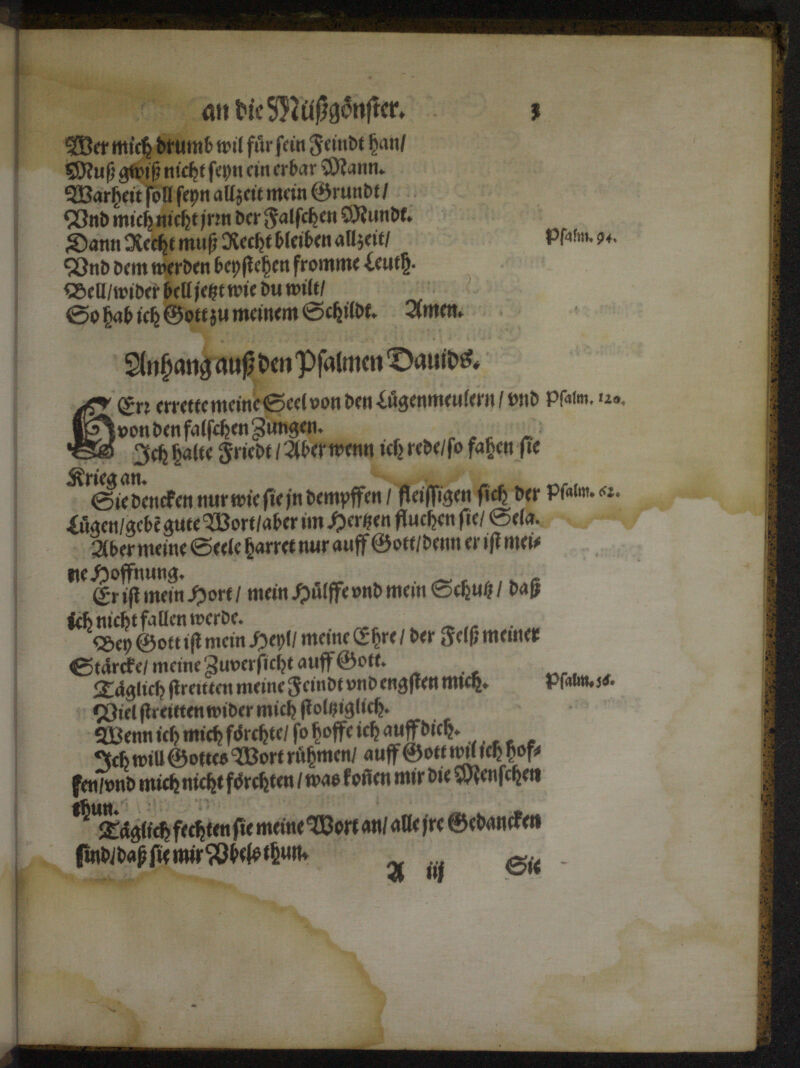 an die Mißgönster. 3
Wer mich drumb wil für sein Feindt han/
Muß gwiß nicht seyn ein erbar Mann.
Warheit soll seyn allzeit mein Grundt/
Vnd mich nicht jrrn der Falschen Mundt.
Dann Recht muß Recht bleiben allzeit/ Psalm. 94.
Vnd dem werden beystehen fromme Leuth.
Bell/wider bell jetzt wie du wilt/
So hab ich Gott zu meinem Schildt. Amen.
Anhang auß den Psalmen Dauids.
HErr errette meine Seel von den Lügenmeulern/vnd Psalm. 120.
von den falschen Zungen.
Ich halte Friedt/Aber wenn ich rede/so fahen sie
Krieg an.
Sie dencken nur wie sie jn dempffen/fleissigen sich der Psalm. 62.
Lügen/gebē gute Wort/aber im Hertzen fluchen sie/Sela.
Aber meine Seele harret nur auff Gott/denn er ist mei-
ne Hoffnung.
Er ist mein Hort/mein Hülffe vnd mein Schutz/daß
ich nicht fallen werde.
Bey Gott ist mein Heyl/meine Ehre/der Felß meiner
Stärcke/meine Zuversicht auff Gott.
Täglich streitten meine Feindt vnd engsten mich. Psalm. 56.
Viel streitten wider mich stoltziglich.
Wenn ich mich förchte/so hoffe ich auff dich.
Ich will Gottes Wort rühmen/auff Gott wil ich hof-
fen/vnd mich nicht förchten/was koñen mir die Menschen
thun.
Täglich fechten sie meine Wort an/alle jre Gedancken
sind/daß sie mir Vbels thun.
A iij Sie